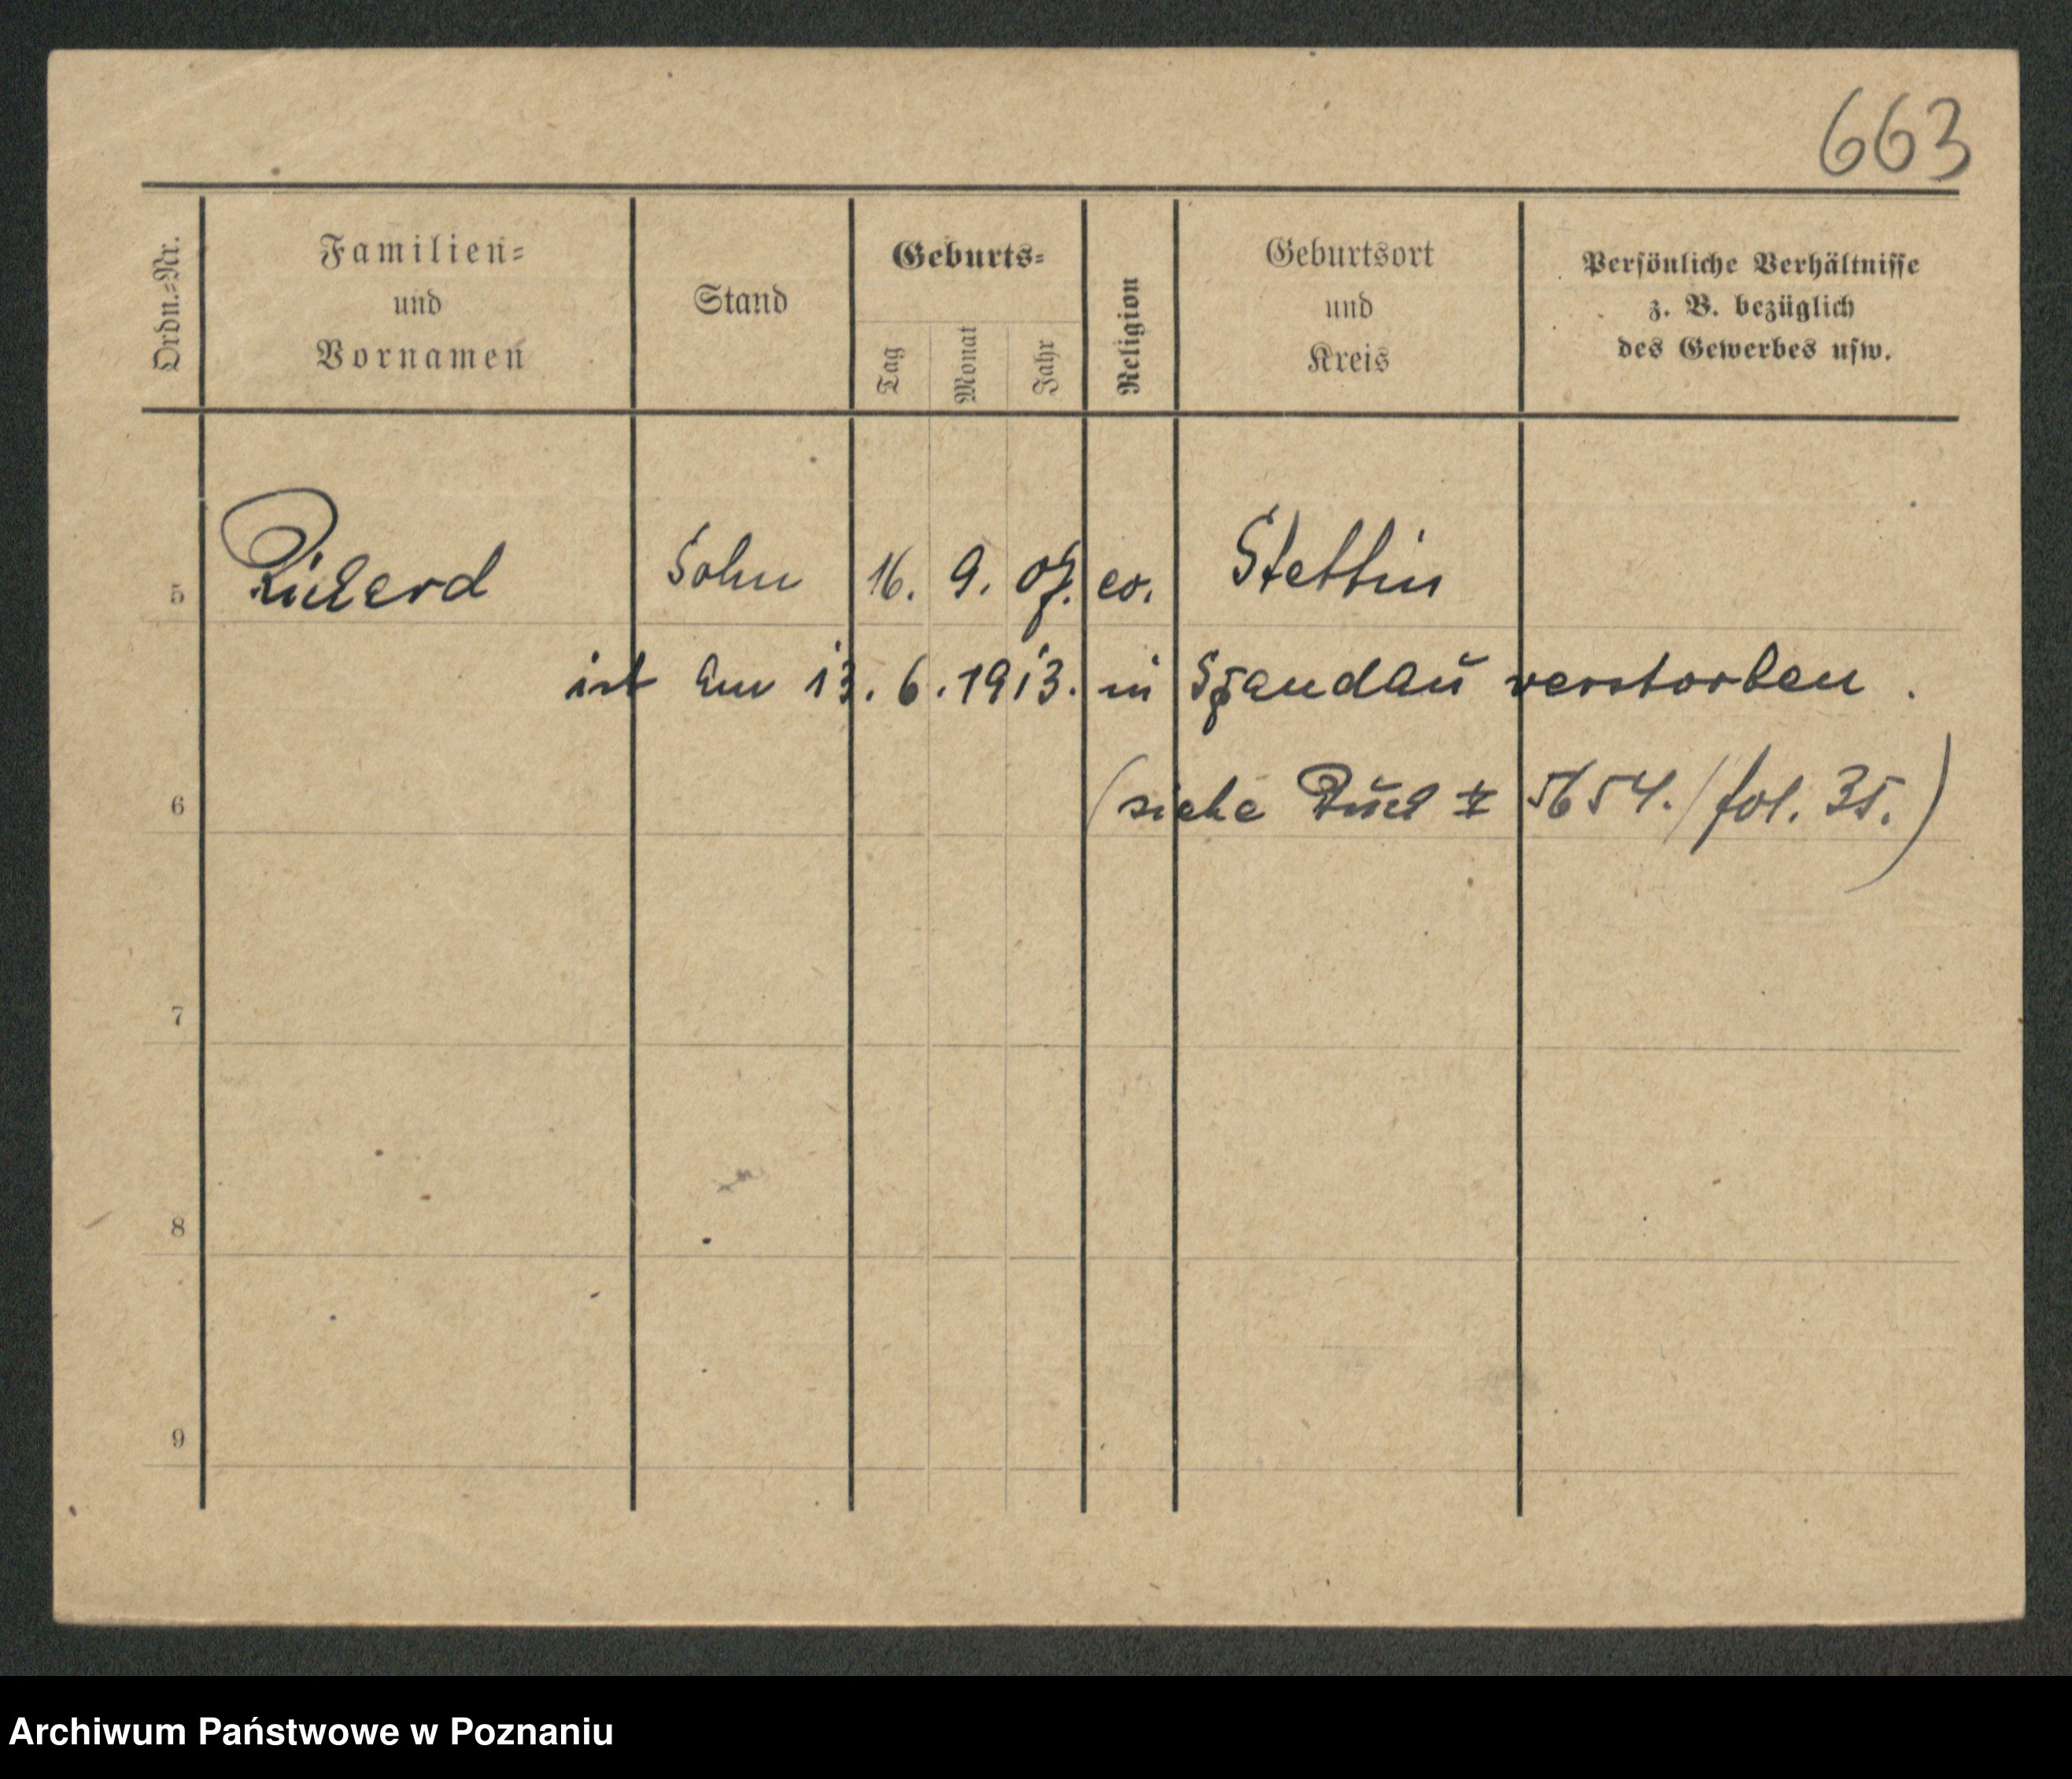 663
Ordn.-Nr.
Familien-
und
Vornamen
Stand
Geburts-
Tag
Monat
Jahr
Religion
Geburtsort
und
Kreis
Persönliche Verhältnisse
z. B. bezüglich
des Gewerbes usw.
5 Richard Sohn 16. 9. 07. ev. Stettin
ist am 13. 6. 1913. in Spandau verstorben.
6 (siehe 5654./fol. 35.)
7
8
9
Archiwum Państwowe w Poznaniu